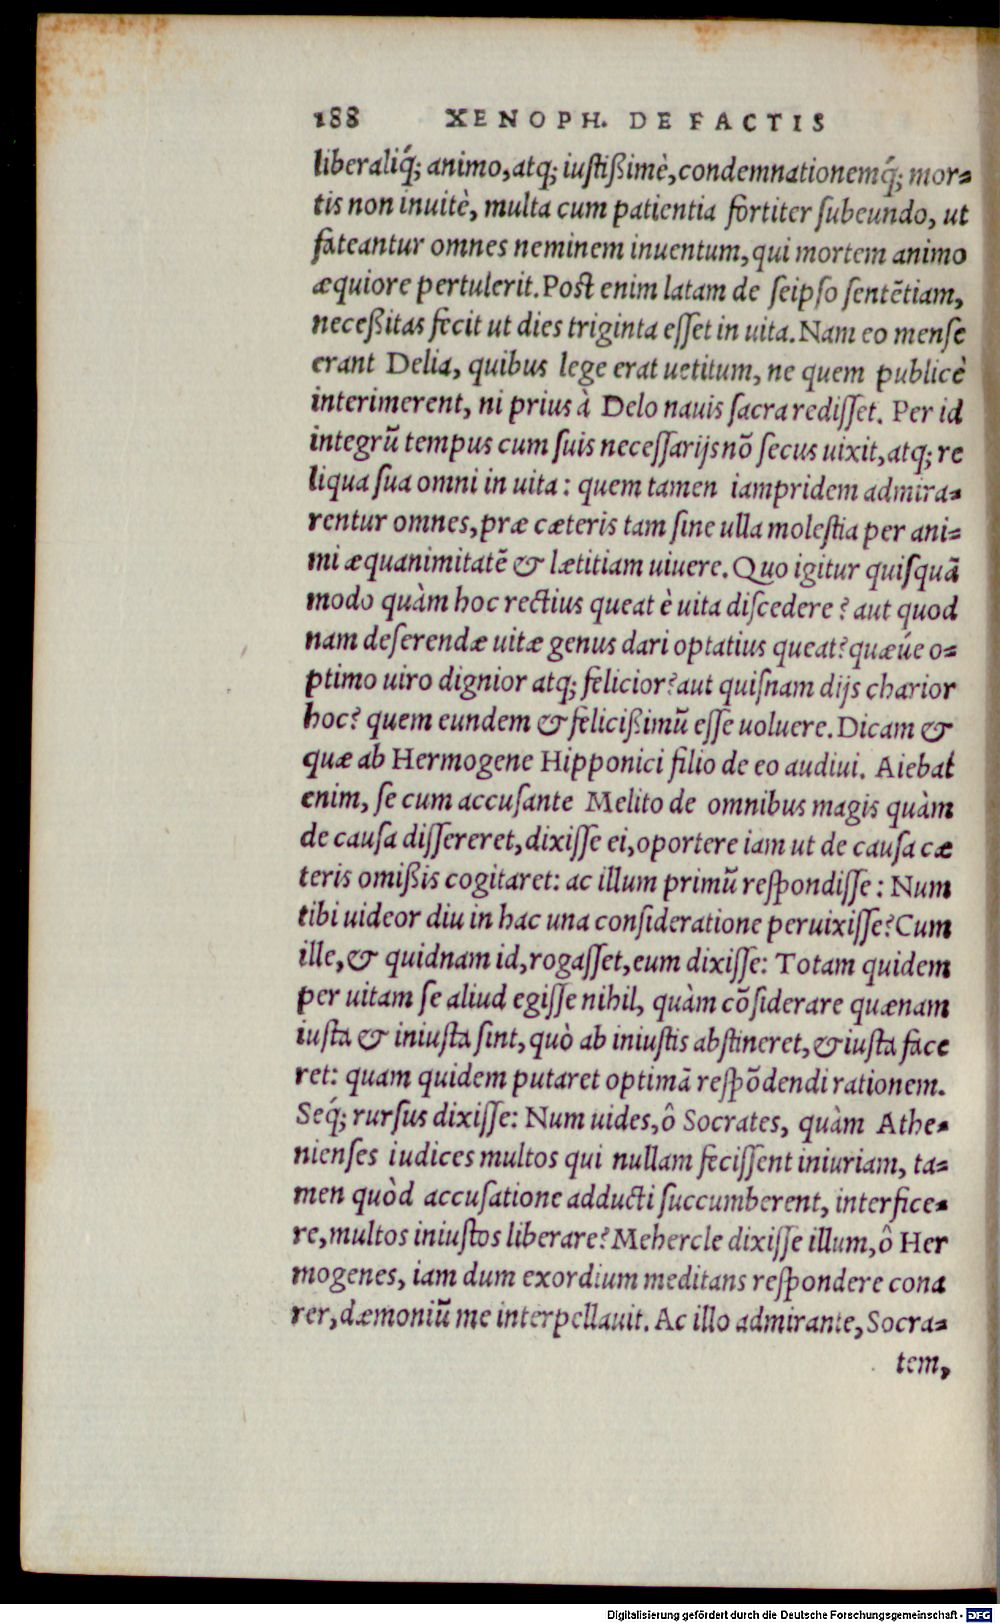 188 XENOPH. DE FACTIS
liberaliq́; animo, atq; iustißimè, condemnationemq́; mor-
tis non inuitè, multa cum patientia fortiter subeundo, ut
fateantur omnes neminem inuentum, qui mortem animo
æquiore pertulerit. Post enim latam de seipso sentētiam,
neceßitas fecit ut dies triginta esset in uita. Nam eo mense
erant Delia, quibus lege erat uetitum, ne quem publicè
interimerent, ni prius à Delo nauis sacra redisset. Per id
integrū tempus cum suis necessarijs nō secus uixit, atq; re
liqua sua omni in uita: quem tamen iampridem admira-
rentur omnes, præ cæteris tam sine ulla molestia per ani-
mi æquanimitatē & lætitiam uiuere. Quo igitur quisquā
modo quàm hoc rectius queat è uita discedere? aut quod
nam deserendæ uitæ genus dari optatius queat? quæúe o-
ptimo uiro dignior atq; felicior? aut quisnam dijs charior
hoc? quem eundem & felicißimū esse uoluere. Dicam &
quæ ab Hermogene Hipponici filio de eo audiui. Aiebat
enim, se cum accusante Melito de omnibus magis quàm
de causa dissereret, dixisse ei, oportere iam ut de causa cæ
teris omißis cogitaret: ac illum primū respondisse: Num
tibi uideor diu in hac una consideratione peruixisse? Cum
ille, & quidnam id, rogasset, eum dixisse: Totam quidem
per uitam se aliud egisse nihil, quàm cōsiderare quænam
iusta & iniusta sint, quò ab iniustis abstineret, & iusta face
ret: quam quidem putaret optimā respōdendi rationem.
Seq́; rursus dixisse: Num uides, ô Socrates, quàm Athe-
nienses iudices multos qui nullam fecissent iniuriam, ta-
men quòd accusatione adducti succumberent, interfice-
re, multos iniustos liberare? Mehercle dixisse illum, ô Her
mogenes, iam dum exordium meditans respondere cona
rer, dæmoniū me interpellauit. Ac illo admirante, Socra-
tem,
Digitalisierung gefördert durch die Deutsche Forschungsgemeinschaft - DFG